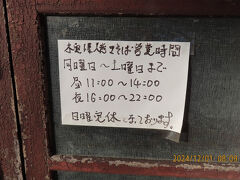 そば営業時間
月曜日〜土曜日まで
昼11:00〜14:00
夜16:00〜22:00
日曜定休となっております。
2024/12/01 08:09